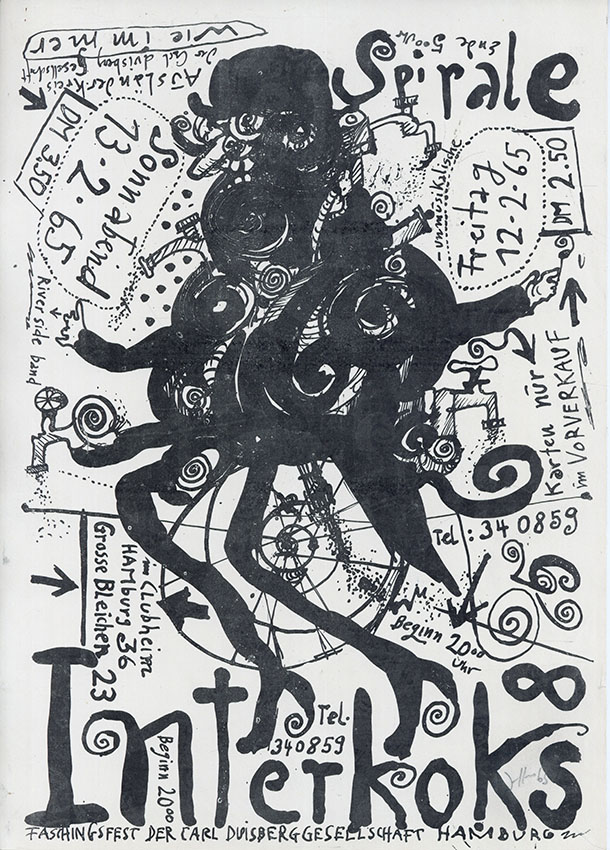 wie immer
Ausländerkreis
der Carl duisberg Gesellschaft
Ende 5⁰⁰ Uhr
Spirale
DM 3.50
Sonnabend
13·2·65
-unmusikalische
Freitag
12·2·65
DM 2.50
River side band
Karten nur
im VORVERKAUF
Tel: 34 0859
im Clubheim
HAMburg 36
Grosse Bleichen 23
Beginn 20⁰⁰
Uhr
Tel.
340859
Beginn 20⁰⁰
Interkoks
FASCHINGSFEST DER CARL DUISBERGGESELLSCHAFT HAMBURG